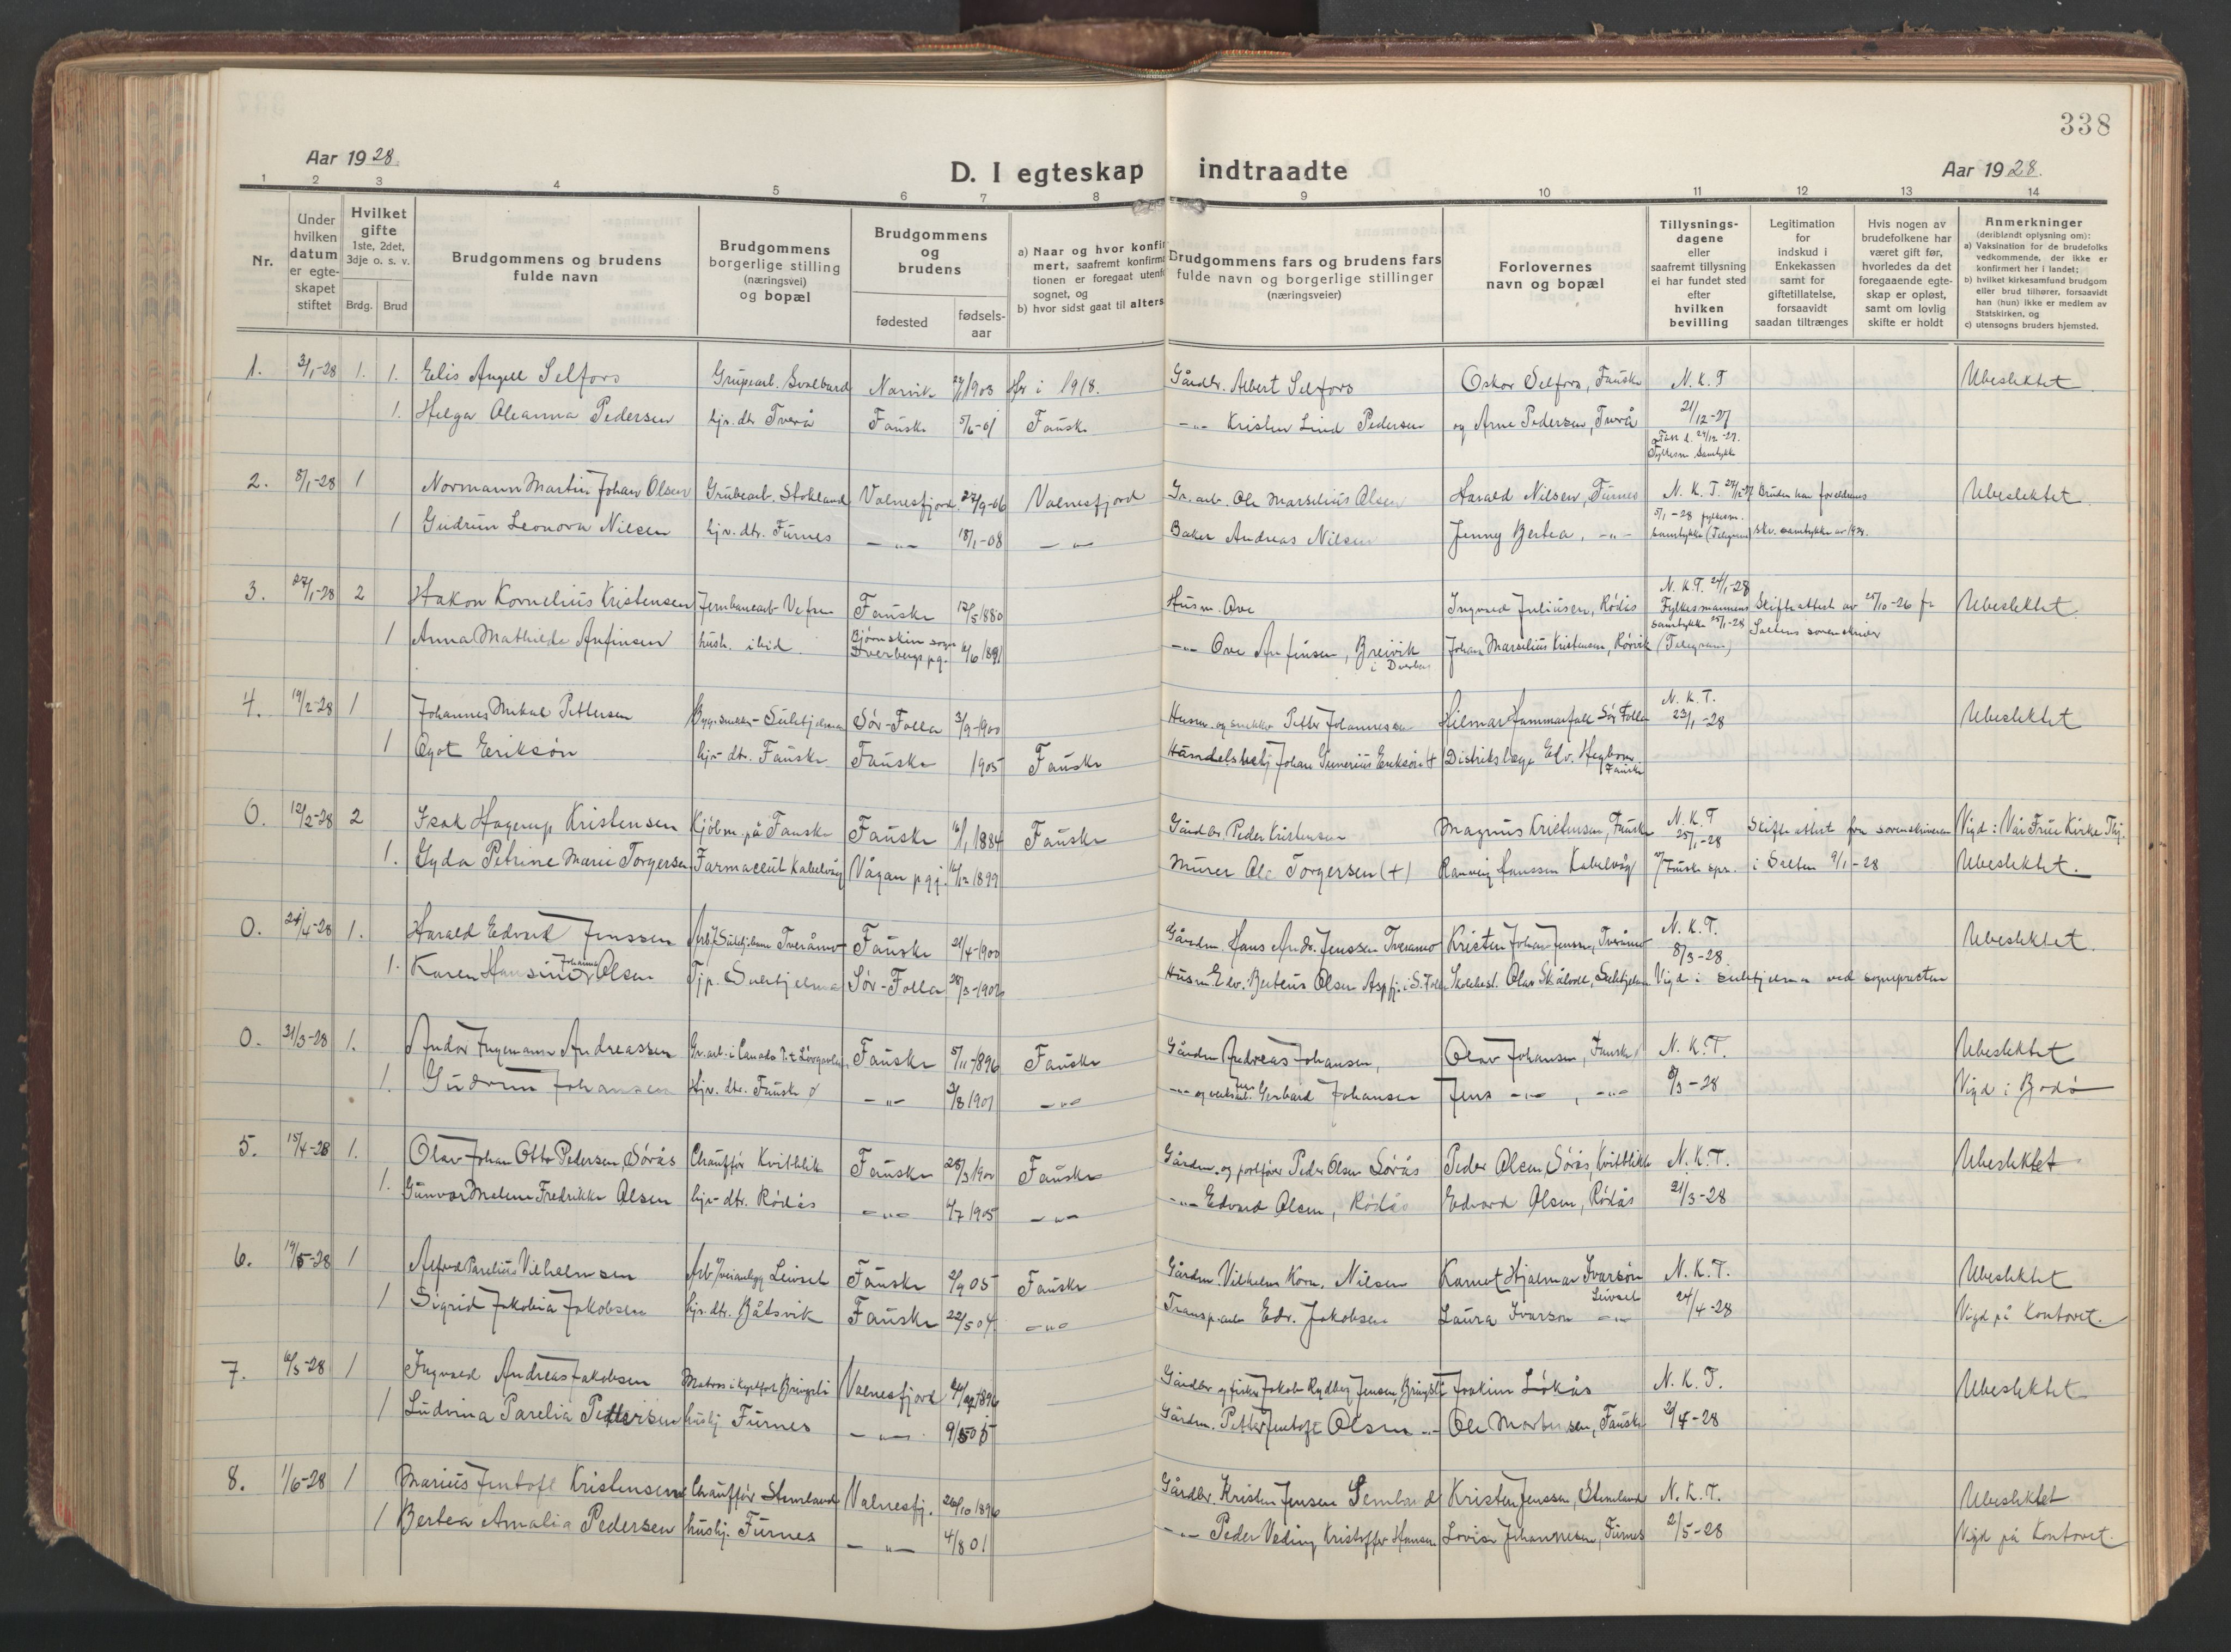 338
Aar 1928.
D. I egteskap indtraadte
Aar 1928.
1 2 3 4 5 6 7 8 9 10 11 12 13 14
Nr.
Under hvilken datum er egte-skapet stiftet
Hvilket gifte 1ste, 2det, 3dje o. s. v.
Brdg. Brud
Brudgommens og brudens fulde navn
Brudgommens borgerlige stilling (næringsvei) og bopæl
Brudgommens og brudens
fødested
fødsels-aar
a) Naar og hvor konfir
mert, saafremt konfirma
tionen er foregaat utenfo
sognet, og
b) hvor sidst gaat til alters
Brudgommens fars og brudens fars
fulde navn og borgerlige stillinger
(næringsveier)
Forlovernes
navn og bopæl
Tillysnings-dagene eller saafremt tillysning ei har fundet sted efter hvilken bevilling
Legitimation for indskud i Enkekassen samt for giftetillatelse, forsaavidt saadan tiltrænges
Hvis nogen av brudefolkene har været gift før, hvorledes da det foregaaende egte-skap er opløst, samt om lovlig skifte er holdt
Anmerkninger
(deriblandt oplysning om):
a) Vaksination for de brudefolks vedkommende, der ikke er konfirmert her i landet;
b) hvilket kirkesamfund brudgom eller brud tilhører, forsaavidt han (hun) ikke er medlem av Statskirken, og
c) utensogns bruders hjemsted.
1. 3/1-28 1. 1. Eelis Angell Selfors Grubearb. Svalbard Narvik 1903 Her i 1918. Gårdbr. Albert Selfors Oskar Selfors, Fauske N. K. T Ubeslektet
1. Helga Oleanna Pedersen hjv. dtr Tverå Fauske 5/6-01 Fauske -"- Kristen Lind Pedersen og Arne Pedersen, Tverå 21/12-27
Fylkesm. samtykke
2. 8/1-28 1 Normann Martin Johan Olsen Grubearb. Stokland Valnesfjord 27/9-06 Valnesfjord Gr. arb. Ole Marselius Olsen Harald Nilsen, Furnes N. K. T. 27/12-27 Bruden har foreldrenes Ubeslektet
1 Gudrun Leonora Nilsen hjv. dtr. Furnes -"- 18/1-08 -"- Baker Andreas Nilsen Jenny Bertea, -"- 5/1-28 fylkesm. samtykke (Telegram) skr. samtykke av
3. 27/1-28 2 Hakon Kornelius Kristensen Jernbanearb. Vefsn Fauske 12/5 1880 Husm. Ove Ingvard Juliusen, Rödås N. K. T. 24/1-28 Skifteattest av 25/10-26 fr Ubeslektet
1 Anna Mathilde Anfinsen hush. ibid. Bjørnskin sogn Dverbergs pg. 1891 -"- Ove Anfinsen, Breivik i Dverberg Johan Marselius Kristensen, Rörvik Fylkesmannens samtykke 25/1-28 (Telegram) Saltens sorenskriver
4. 19/2-28 1 Johannes Mikal Pettersen Byg. snekker Sulitjelma Sör-Folla 3/9-1900 Husm. og snekker Petter Johannessen Hilmar Hammarfall Sör Folla N. K. T. 23/1-28 Ubeslektet
1 Ågot Eriksön hjv. dtr. Fauske Fauske 1905 Fauske Handelsbetj. Johan Gunerius Eriksön + Distriktslæge Edv. Hegbom Fauske
0. 12/2-28 2 Isak Hagerup Kristensen Kjöbm. på Fauske Fauske 16/1 1884 Fauske Gårdbr. Peder Kristensen Magnus Kristensen, Fauske N. K. T 25/1-28 Skifteattest fra sorenskriveren Vigd i Vår Frue Kirke Thj.
1. Gyda Petrine Marie Torgersen Farmaceut Kabelvåg Vågan pgj. 1899 Murer Ole Torgersen (+) Ranveig Hanssen Kabelvåg i Salten 9/1-28 Ubeslektet.
0. 24/4-28 1. Harald Edvard Jenssen Arb. Sulitjelma Tveråmo Fauske 21/4-1900 Gårdm. Hans Andr. Jenssen Tveråmo Kristen Johan Jensen, Tveråmo N. K. T. 8/3-28 Ubeslektet.
1. Karen Hansine Johanna Olsen Tjp. Sulitjelma Sör-Folla 28/3-1902 Husm. Edv. Berteus Olsen Aspfj. i S. Folla Skolebest. Olav Skålvoll, Sulitjelma Vigd i Sulitjelma ved sognepresten
0. 31/3-28 1. Andor Ingemann Andreassen Gr. arb. i Canada Fauske 5/11-1896 Fauske Gårdm Andreas Johansen, Olav Johansen, Fauske N. K. T. Ubeslektet
1. Gudrun Johansen Hjv. dtr. Fauske -"- 2/8 1901 -"- -"- og verksarb. Gerhard Johansen Jens -"-, -"- 8/3-28 Vigd i Bodø
5. 15/4-28 1. Olav Johan Otto Pedersen, Sörås Chaufför Kvitblik Fauske 28/3 1900 Fauske Gårdm. og postförer Peder Olsen Sörås Peder Olsen, Sörås, Kvitblikk N. K. T. Ubeslektet
1. Gunvor Malene Fredrikke Olsen hjv. dtr. Rödås -"- 6/7 1905 -"- -"- Edvard Olsen, Rödås Edvard Olsen, Rödås 21/3-28
6. 19/5-28 1 Alfred Parelius Vilhelmsen Arb. v/veianlegg Leivset Fauske 2/9 05 Fauske Gårdm. Vilhelm Korn. Nilsen Kornet Hjalmar Ivarsön Leivset N. K. T. Ubeslektet
1 Sigrid Jakobia Jakobsen hjv. dtr. Båtsvik Fauske 22/5 04 -"- Transp. arb. Edv. Jakobsen Laura Ivarson -"- 24/4-28 Vigd på Kontoret.
7. 16/5-28 1 Ingvald Andreas Jakobsen Matros i kystfart Bringsli Valnesfjord 1896 Gårdbr. og fisker Jakob Rydberg Jensen, Bringsli Joakim Lökås N. K. T. Ubeslektet
1 Ludvina Parelia Pettersen hushj. Furnes -"- Gårdm. Petter Jentoft Olsen -"- Ole Mortensen, Fauske 2/4-28
8. 1/6-28 1 Marius Jentoft Kristensen Chaufför Stemland Valnesfj. 26/10 1896 Gårdbr. Kristen Jensen Kristen Jenssen, Stemland N. K. T. Ubeslektet
1 Bertea Amalia Pedersen hushj. Furnes -"- 4/8 01 -"- Peder Veding Kristoffer Hansen Lovise Johannesen, Furnes 2/5-28 Vigd på Kontoret.